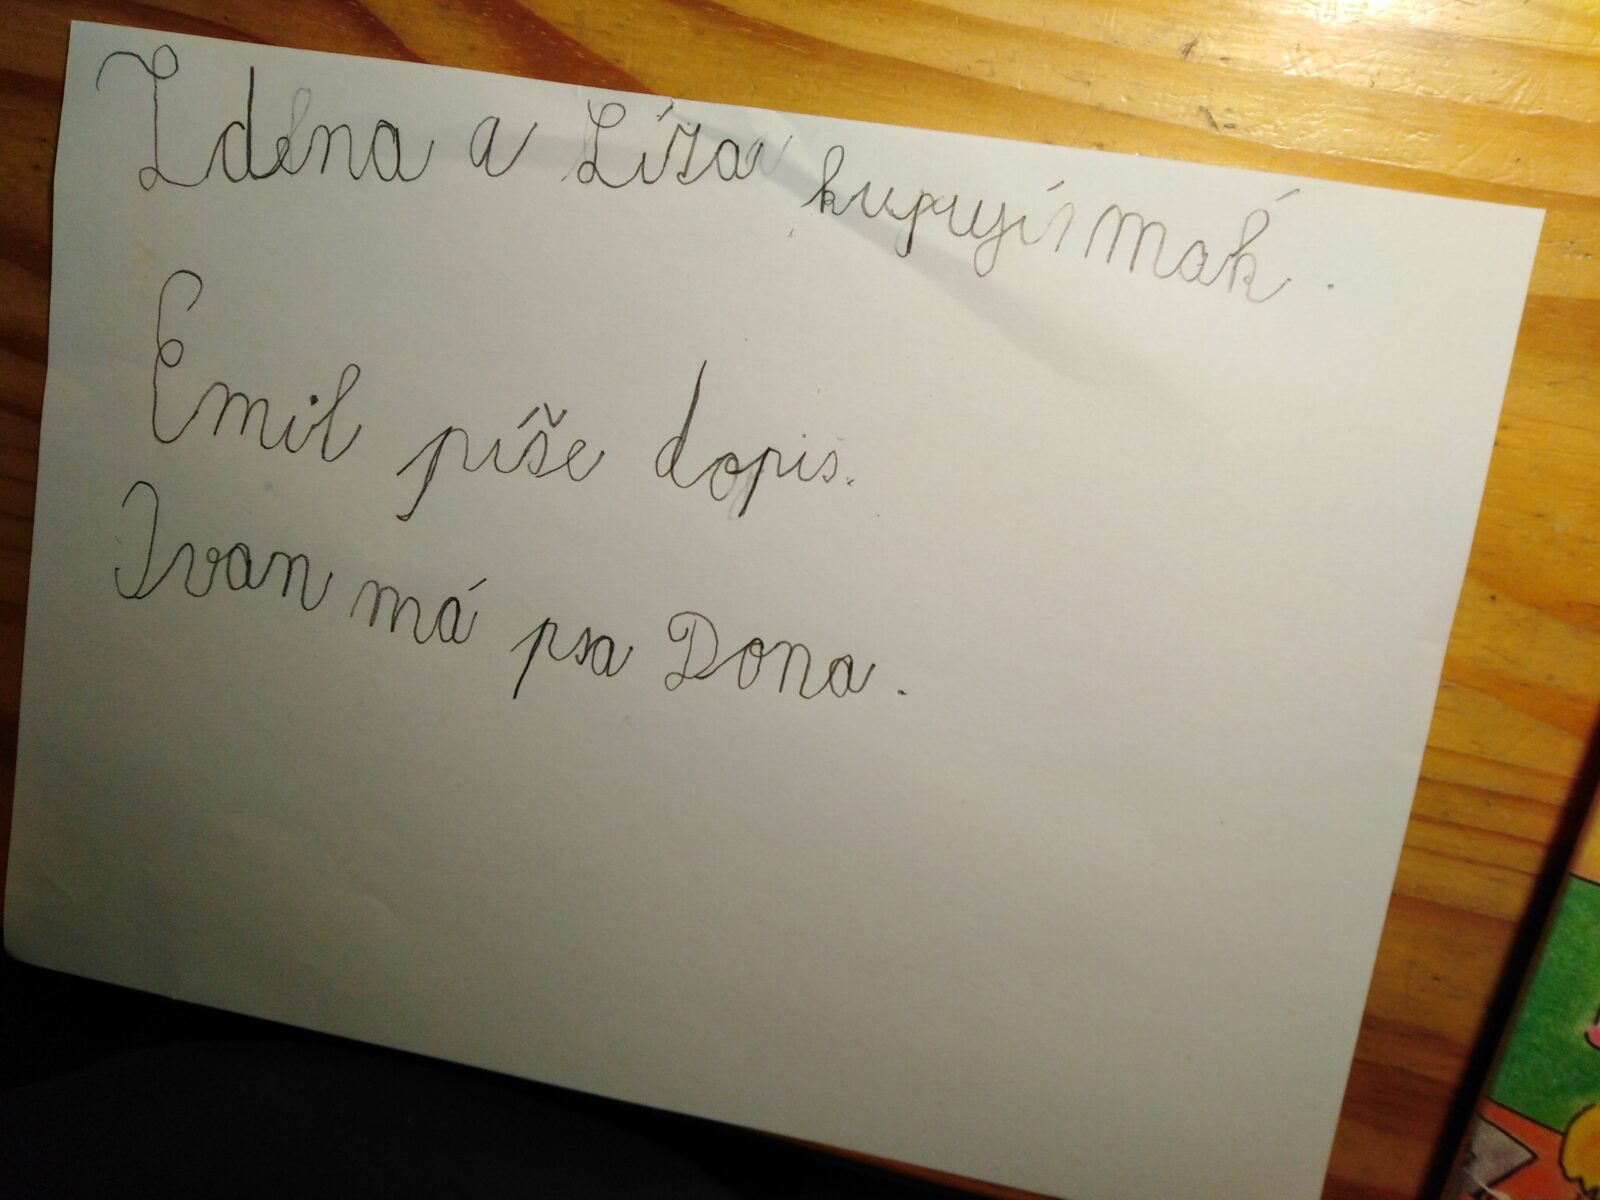 Zdena a Líza kupují mak.
Emil píše dopis.
Ivan má psa Dona.